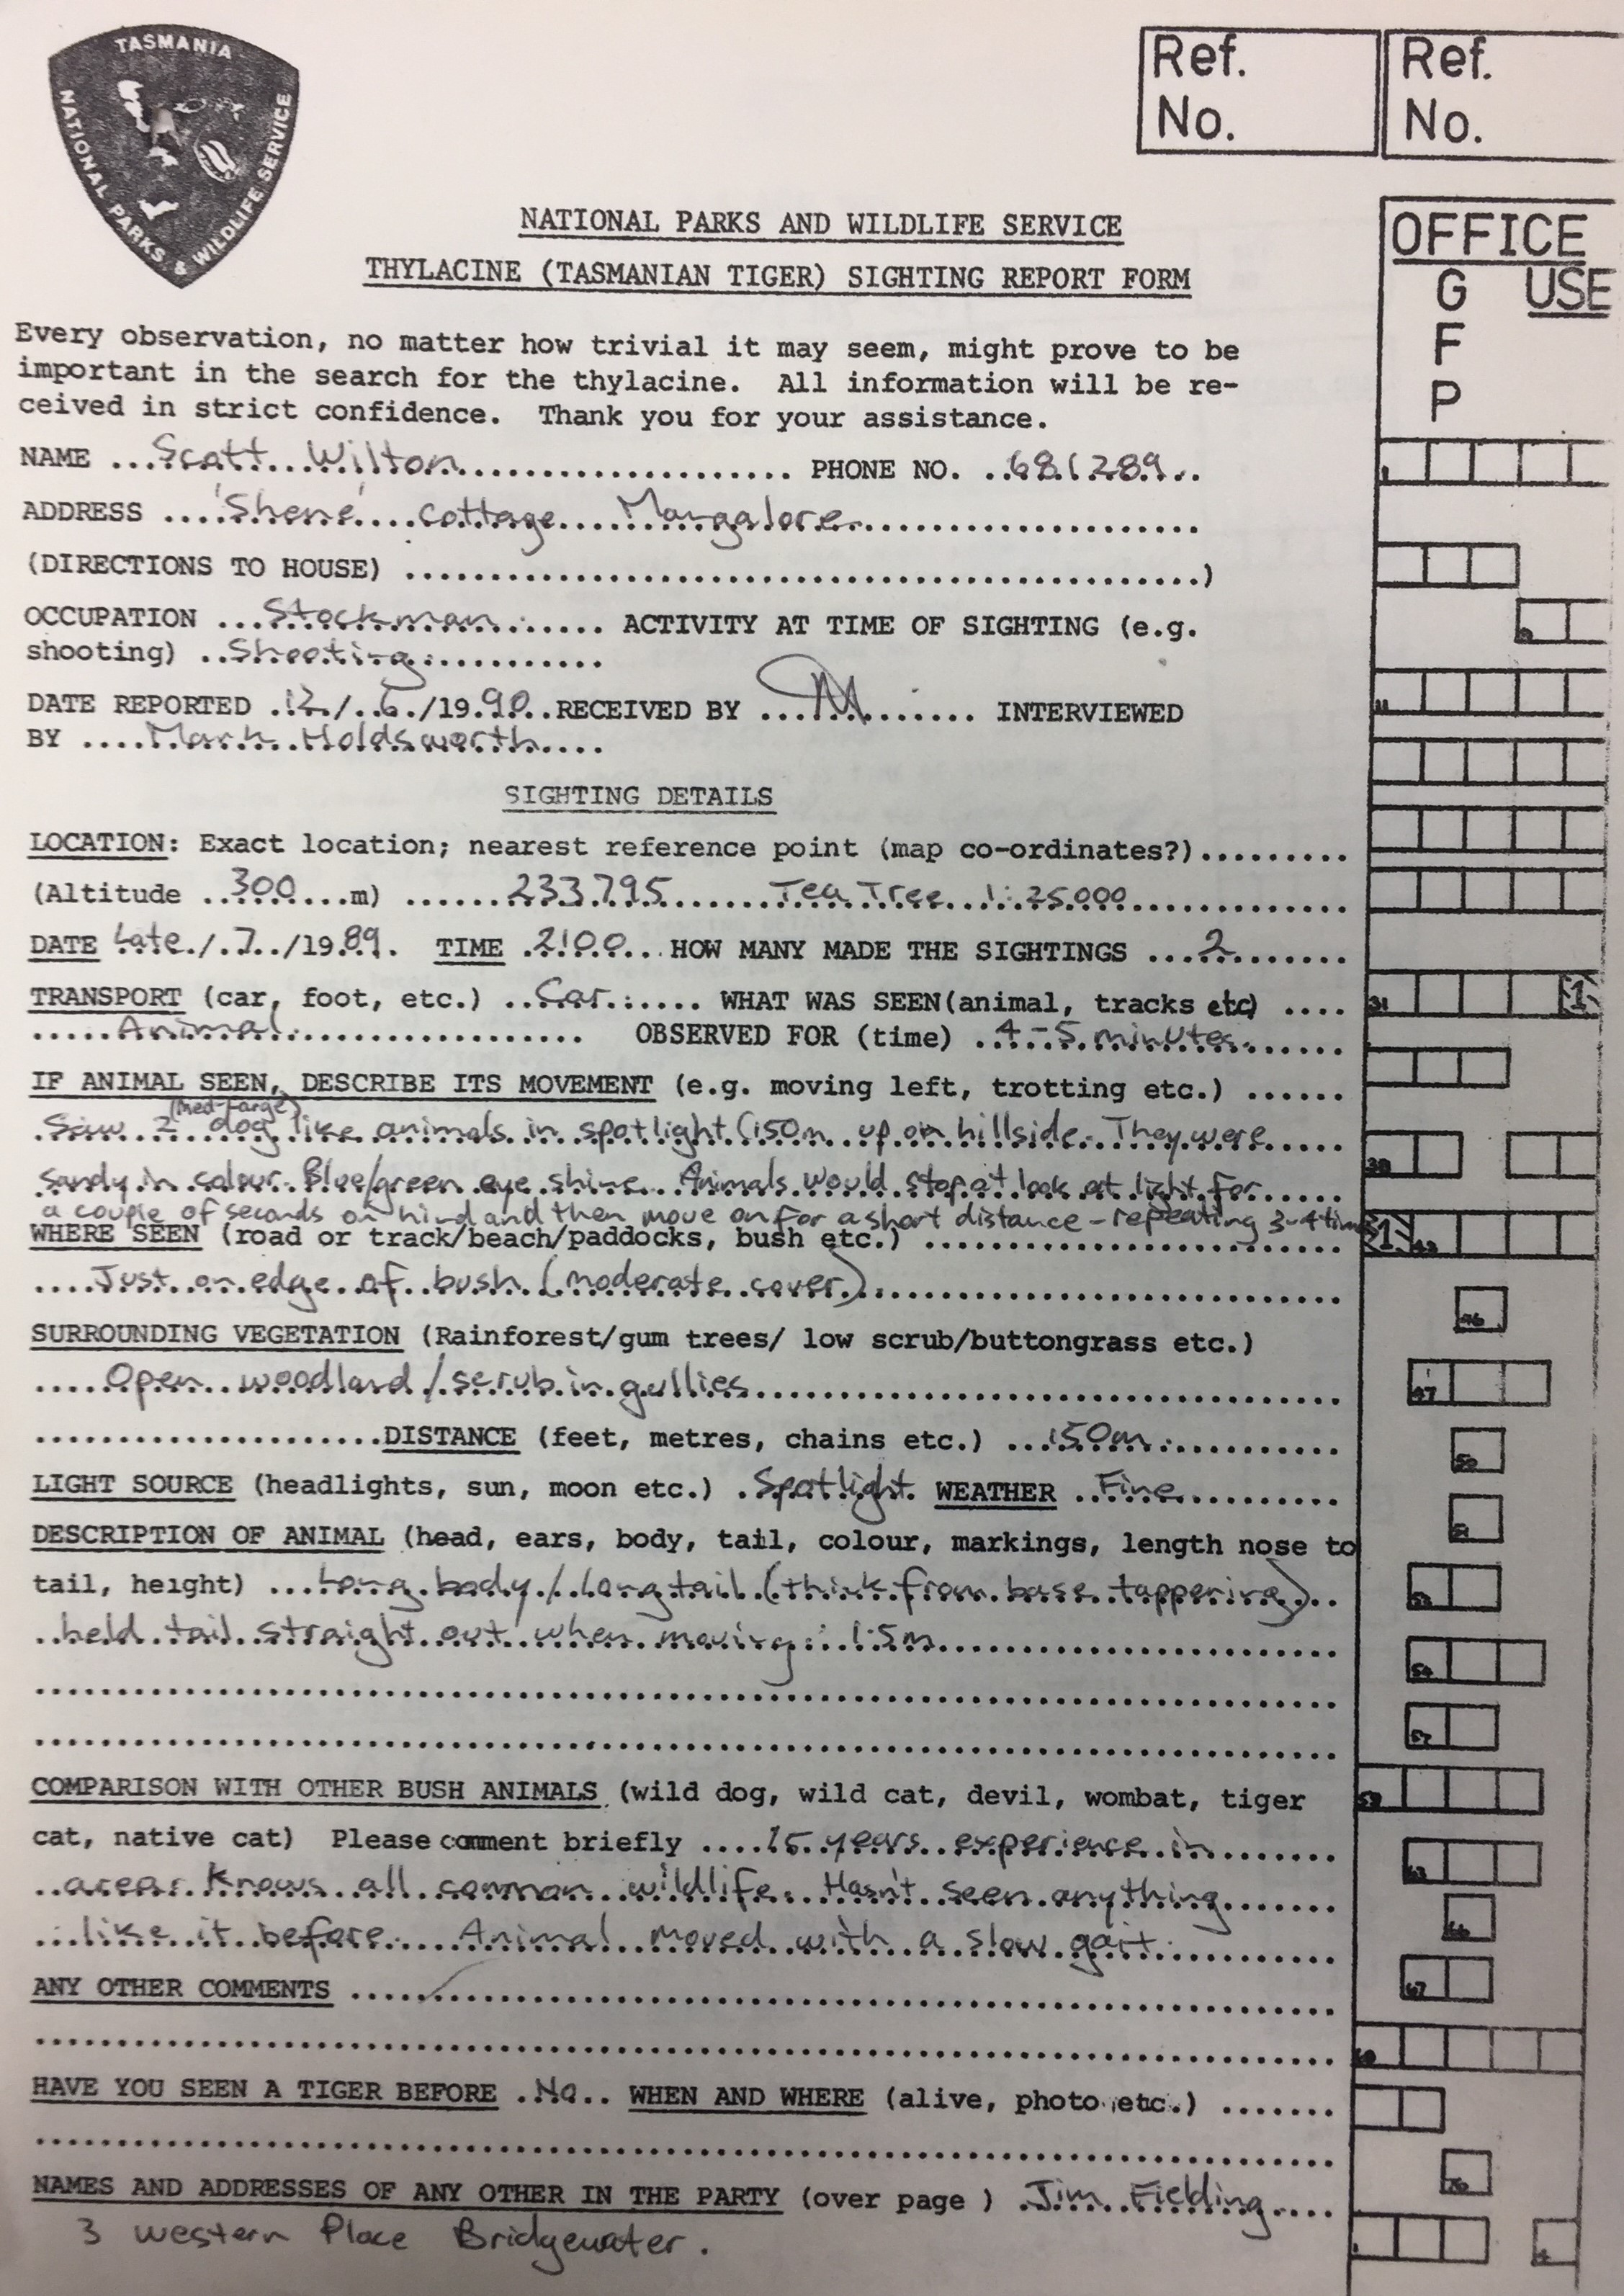 TASMANIA
NATIONAL PARKS & WILDLIFE SERVICE
Ref. No.
Ref. No.
OFFICE USE
G
F
P
NATIONAL PARKS AND WILDLIFE SERVICE
THYLACINE (TASMANIAN TIGER) SIGHTING REPORT FORM
Every observation, no matter how trivial it may seem, might prove to be
important in the search for the thylacine. All information will be re-
ceived in strict confidence. Thank you for your assistance.
NAME ...Scott Wilton... PHONE NO. ..681289..
ADDRESS ....'Shene' cottage Mangalore....
(DIRECTIONS TO HOUSE) ....)
OCCUPATION ...Stockman... ACTIVITY AT TIME OF SIGHTING (e.g.
shooting) ..Shooting....
DATE REPORTED .12./..6./19.90..RECEIVED BY ........ INTERVIEWED
BY ....Mark Holdsworth....
SIGHTING DETAILS
LOCATION: Exact location; nearest reference point (map co-ordinates?).........
(Altitude ..300...m) ......233795......Tea Tree 1:25000......
DATE Late./.7../19.89. TIME .2100... HOW MANY MADE THE SIGHTINGS ...2......
TRANSPORT (car, foot, etc.) ..Car...... WHAT WAS SEEN(animal, tracks etc) ....
.....Animal....... OBSERVED FOR (time) ..4-5 minutes......
IF ANIMAL SEEN, DESCRIBE ITS MOVEMENT (e.g. moving left, trotting etc.) ......
(med-large)
Saw 2 dog like animals in spotlight (150m up on hillside. They were
sandy in colour. Blue/green eye shine. Animals would stop at look at light for
a couple of seconds on hind and then move on for a short distance - repeating 3-4 times
WHERE SEEN (road or track/beach/paddocks, bush etc.) ......
....Just on edge of bush (moderate cover)......
SURROUNDING VEGETATION (Rainforest/gum trees/ low scrub/buttongrass etc.)
.....Open woodland/scrub in gullies......
......DISTANCE (feet, metres, chains etc.) ...150m......
LIGHT SOURCE (headlights, sun, moon etc.) .Spotlight. WEATHER ..Fine......
DESCRIPTION OF ANIMAL (head, ears, body, tail, colour, markings, length nose to
tail, height) ...Long body/long tail (think from base tappering)..
..held tail straight out when moving: 1.5m......
COMPARISON WITH OTHER BUSH ANIMALS (wild dog, wild cat, devil, wombat, tiger
cat, native cat) Please comment briefly ....15 years experience in......
..area. Knows all common wildlife. Hasn't seen anything
...like it before. Animal moved with a slow gait......
ANY OTHER COMMENTS ......
HAVE YOU SEEN A TIGER BEFORE .No.. WHEN AND WHERE (alive, photo etc.) .......
NAMES AND ADDRESSES OF ANY OTHER IN THE PARTY (over page ) .Jim Fielding....
3 Western Place Bridgewater.